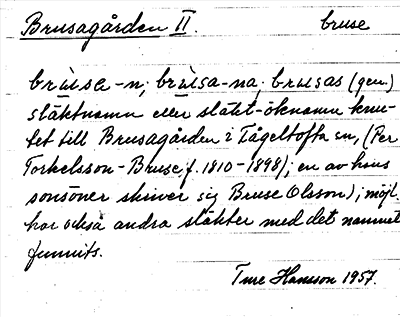 Brusagården II. bruse
brùsa -n; brùsa-na; brusas (gen.)
släktnamn eller släkt-öknamn knu-
tet till Brusagården i Tågeltofta sn, (Per
Torkelsson-Bruse f. 1810-1898); en av hans
sonsöner skriver sig Bruse Olsson); möjl.
har också andra släkter med det namnet
funnits.
Ture Hansson 1957.